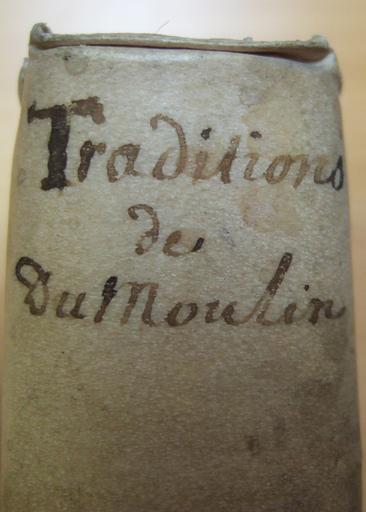 Traditions
de
Du Moulin